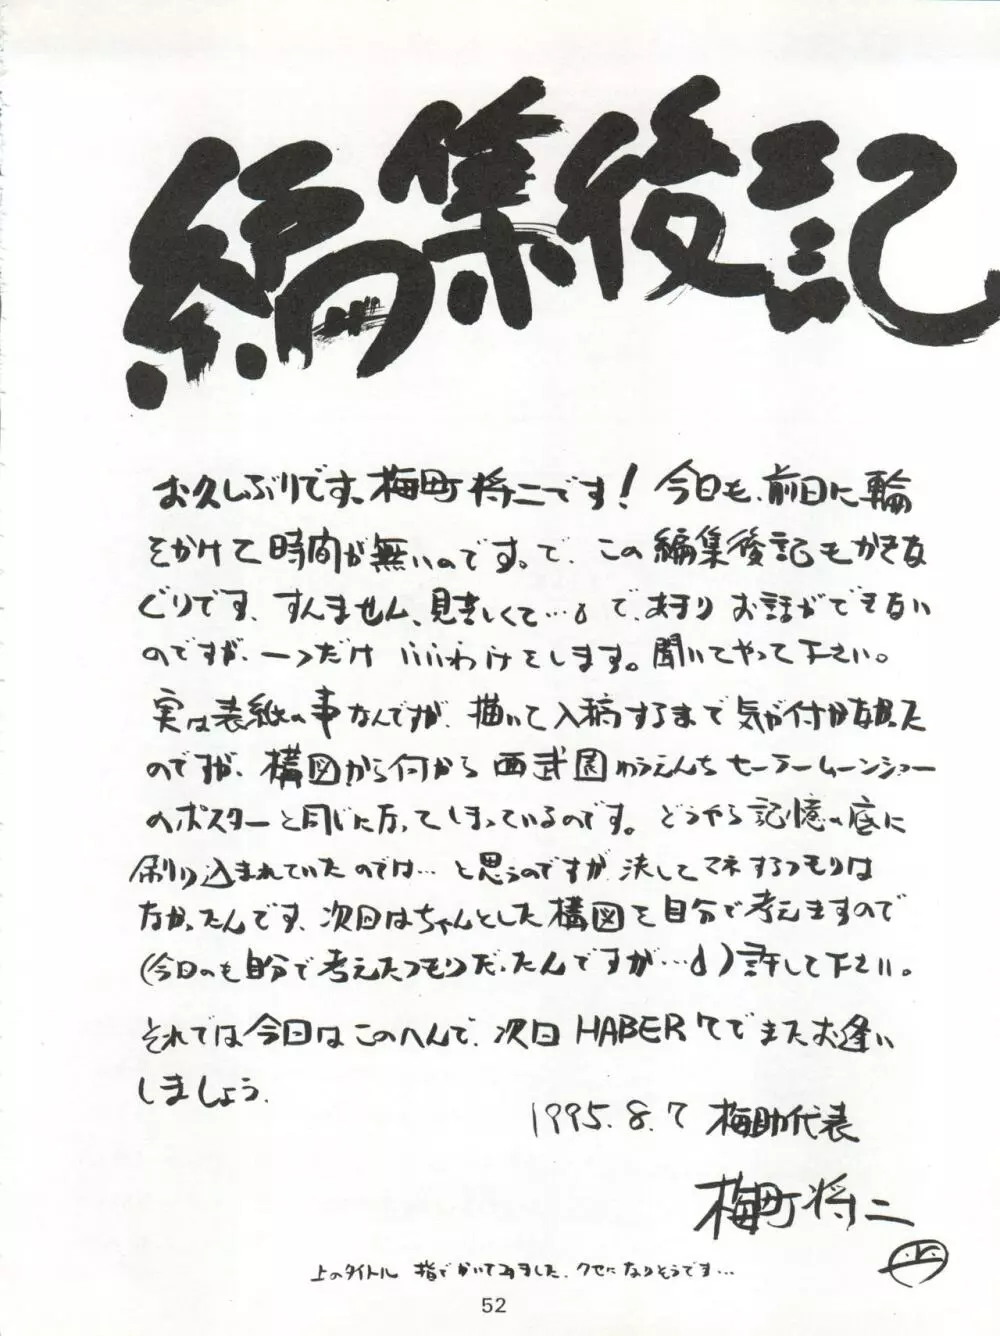 編集後記
お久しぶりです、梅町将二です！今回も、前回に輪
をかけて時間が無いのです。で、この編集後記もかきな
ぐりです、すんません、見苦しくて…。で、あまりお話ができない
のですが、一つだけいいわけをします。聞いてやって下さい。
実は表紙の事なんですが、描いて入稿するまで気が付かなかった
のですが、構図から何から西武園ゆうえんちセーラームーンショー
のポスターと同じになってしまっているのです。どうやら記憶の底に
刷り込まれていたのでは…と思うのですが決してマネするつもりは
なかったんです、次回はちゃんとした構図を自分で考えますので
（今回のも自分で考えたつもりだったんですが…）許して下さい。
それでは今回はこのへんで、次回HABER7でまたお逢い
しましょう。
1995.8.7 梅助代表
梅町将二
上のタイトル 指でかいてみました、クセになりそうです…
52